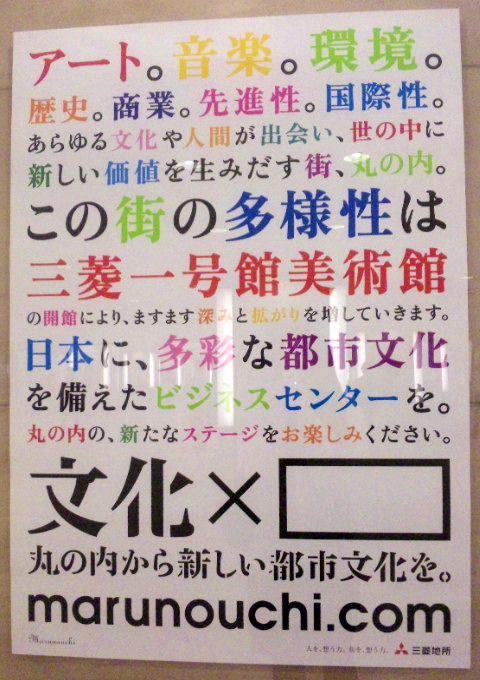 アート。音楽。環境。
歴史。商業。先進性。国際性。
あらゆる文化や人間が出会い、世の中に
新しい価値を生みだす街、丸の内。
この街の多様性は
三菱一号館美術館
の開館により、ますます深みと拡がりを増していきます。
日本に、多彩な都市文化
を備えたビジネスセンターを。
丸の内の、新たなステージをお楽しみください。
文化×
丸の内から新しい都市文化を。
marunouchi.com
Marunouchi
人を、想う力。街を、想う力。 三菱地所